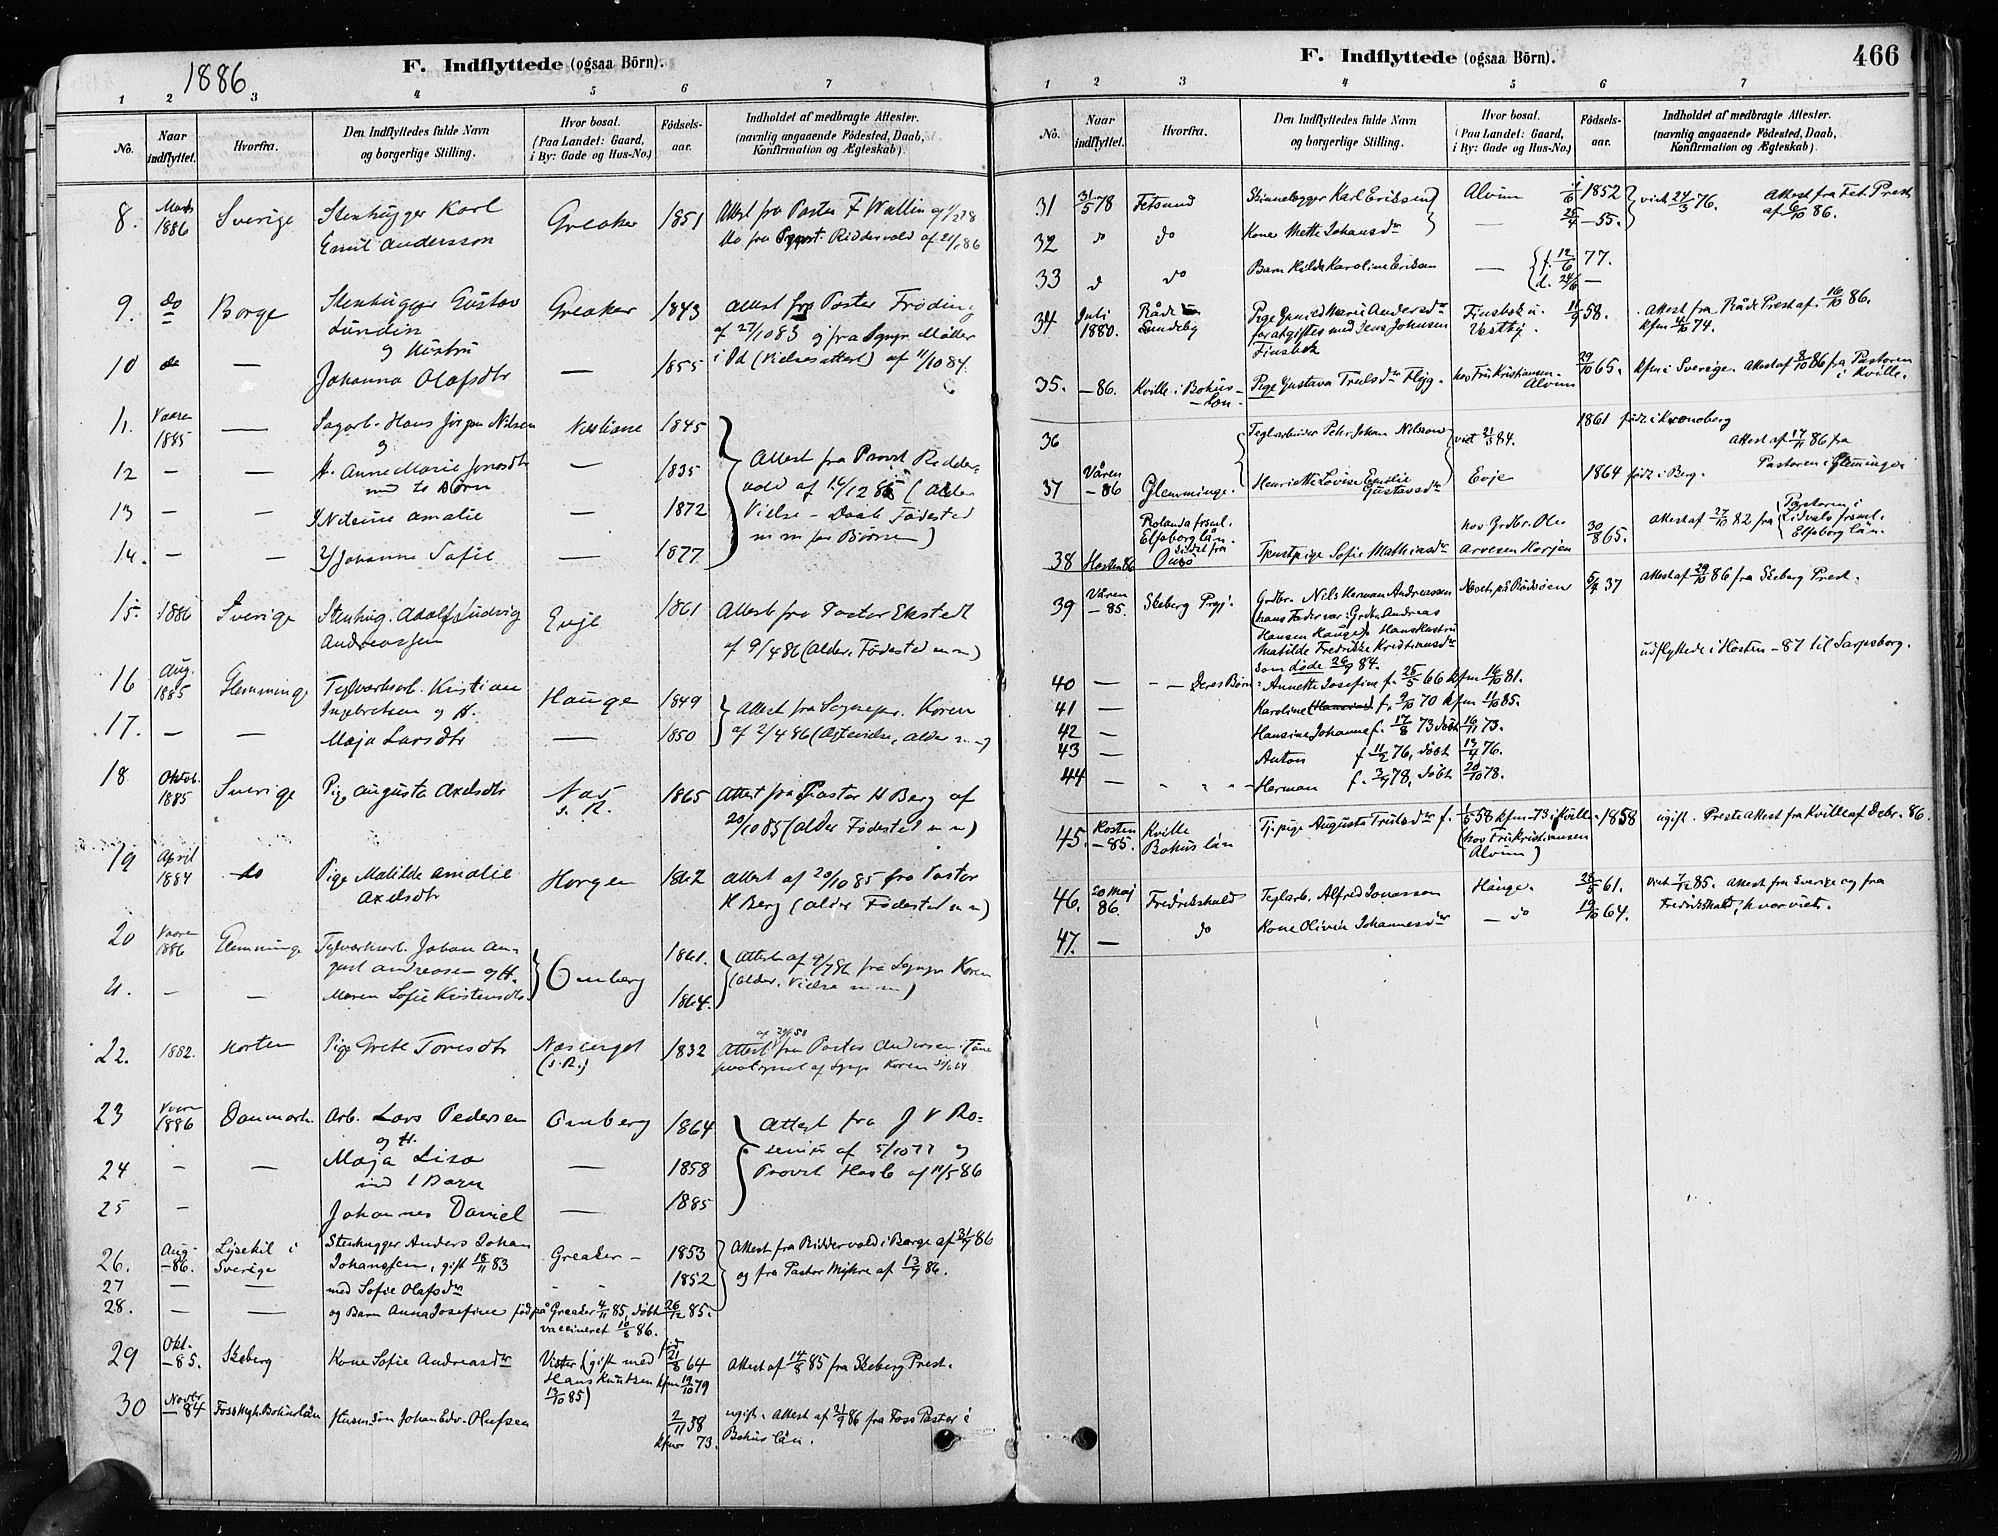 1886
F. Indflyttede (ogsaa Börn).
1 2 3 4 5 6 7
No.
Naar indflyttet.
Hvorfra.
Den Indflyttedes fulde Navn
og borgerlige Stilling.
Hvor bosat.
(Paa Landet: Gaard,
i By: Gade og Hus-No.)
Födsels-
aar.
Indholdet af medbragte Attester.
(navnlig angaaende Födested, Daab,
Konfirmation og Ægteskab).
8. Marts 1886 Sverige Stenhugger Karl Greaker 1851 Attest fra Pastor F Wallin
Emil Andersson Riddervold af 21/1 86
9. do Borge Stenhugger Gustav Greaker 1843 Attest fra Pastor Fröding
Lundin af 27/10 83 og fra Sgnpr Møller
og Hustru i Id (Vielsesattest) af 11/10 84.
10 do — Johanna Olafsdtr — 1855
11. Vaaren 1885 — Sagarb. Hans Jörgen Nilsen 1845
og
12 — — H. Anne Marie 1835 Attest fra Provst Ridder-
med to Børn vold (Alder
13 — — Amalie 1872 Vielse – Daab Födested
14. — — 2/ Johanne Sofie — 1877 m m for Børnene)
15. 1886 Sverige Stenhug. Adolf Ludvig Evje 1861 Attest fra Pastor Ekstedt
Andreassen af 9/4 86 (Alder, Födested m m)
16 Aug. 1885 Glemminge Teglværksarb. Kristian Hauge 1849 Attest fra Sognepr. Koren
Ingebretsen og H.
17. — — Maja Larsdtr — 1850 af 2/4 86 (Ægtevielse, Alder m m)
18 Oktob. 1885 Sverige Pige Augusta Axelsdtr Næs 1865 Attest fra Pastor H Berg af
s. R. 20/10 85 (Alder Födested m m)
19 April 1884 do Pige Matilde Amalie Horgen 1862 Attest af 20/10 85 fra Pastor
Axelsdtr H Berg (Alder Födested m m)
20 Vaaren 1886 Glemminge Teglværksarb. Johan Au- 1861. Attest af 9/7 86 fra Sgnpr Koren
gust Andreasen og H. Omberg
21. — — Maren Sofie Kristensdtr. 1864. (Alder, Vielse m m)
22. 1882. Horten Pige Grete Toresdtr (s. R.) 1832 Attest fra Pastor Andersen
af Sgnpr Koren
23 Vaaren 1886 Danmark. Arb. Lars Pedersen Omberg 1864 Attest fra J V Ro-
og H.
24 — — Maja Lisa — 1858 af 5/10 77 og
med 1 Barn Provst Hasle af 11/5 86
25 — Johannes Daniel — 1885
26. Aug. –86. Lysekil i Stenhugger Anders Johan Greaker – 1853 Attest fra Riddervold i Borge af 21/9 86
Sverige Johanssen, gift 15/11 83
27 — — med Sofie Olafsdtr 1852 og fra Pastor Myhre af 13/9 86.
28. — — og Barn Anna Josefine född på Greaker 4/11 85, døbt 26/12 85.
vaccineret 10/8 86.
29 Okt. –85. Skeberg Kone Sofie Andreasdtr Vister (gift med född 21/8 64 Attest af 14/8 85 fra Skeberg Prest.
Hans Knutsen kfm 19/10 79
13/10 85)
30 Novbr –84 Foss Bohuslän Johan Edv. Olufsen 2/11 38 ugift. Attest af 21/9 86 fra Foss Pastor i
73. Bohus län.
F. Indflyttede (ogsaa Börn).
466
1 2 3 4 5 6 7
No.
Naar indflyttet.
Hvorfra.
Den Indflyttedes fulde Navn
og borgerlige Stilling.
Hvor bosat.
(Paa Landet: Gaard,
i By: Gade og Hus-No.)
Födsels-
aar.
Indholdet af medbragte Attester.
(navnlig angaaende Födested, Daab,
Konfirmation og Ægteskab).
31 31/5 78 Fetsund Karl Eriksen Alvim 1/6 1852 viet 24/3 76. Attest fra Fet Prest
af 6/10 86.
32 do do Kone Mette Johansdtr — 25/4 – 55.
33 d do Barn Hilda Karoline Eriksen — f. 12/6 77.
d. 24/6 —
34 Juli 1880. Råde Pige Gunild Marie Andersdtr Finsbek u. 11/9 58. Attest fra Råde Prest af 16/10 86.
Sundeby foratgiftes med Jens Johnsen Vestby kfm 4/10 74.
Finsbek
35. – 86. Kville i Bohus- Pige Gustava Trulsdtr Flyg. hos Fru Kristiansen 29/10 65. kfm i Sverige. Attest af 8/10 86 fra Pastoren
– Län. Alvim i Kville.
36 Teglarbeider Petr Johan Nilsson viet 21/5 84. 1861 född i Kronoberg
Attest af 17/11 86 fra
Pastoren i Glemminge
37 Våren –86 Glemminge. Henriette Lovise Emilie Evje 1864 född i Berg.
Gustavsdtr
Rolanda frsml. hos Grdbr. Ole Pastoren i
Elfsborg län. 30/8 65. Attest af 27/10 82 fra Lidvals frsml.
sidst fra Elfsborg län.
38 Høsten 86 Onsø Tjenstpige Sofie Mathiasdtr Arvesen Horjen
39 Våren –85. Skeberg Prgj. Grdbr. Nils Herman Andreassen 5/4 37 Attest af 29/10 86 fra Skeberg Prest.
(hans Fader var: Grdbr. Andreas
Hansen Hauge). Hans Hustru
Matilde Fredrikke Kristiansdtr udflyttede i Høsten – 87 til Sarpsborg.
som døde 26/9 84.
40 — — Deres Børn: Annette Josefine f. 25/5 66 kfm 16/10 81.
41 — Karoline (Hansine) f. 9/10 70 kfm 11/10 85.
42 — Hansine Johanne f. 17/8 73 døbt 16/11 73.
43 — Anton f. 11/2 76, døbt 17/4 76.
44 — Herman f. 3/9 78, døbt 20/10 78.
45. Høsten –85. Kville Tj. pige Augusta Trulsdtr f. 1/5 58 kfm –73 i Kville – 1858 ugift. Preste Attest fra Kville af Decbr. 86.
Bohus län (hos Fru Kristiansen
Alvim)
46. 20 Maj 86. Fredrikshald Teglarb. Alfred Jonasson Hauge. 25/5 61. Viet 7/12 85. Attest fra Sverige og fra
47. — do Kone Olivia Johannesdtr — do 19/10 64. Fredrikshald, hvor viet.